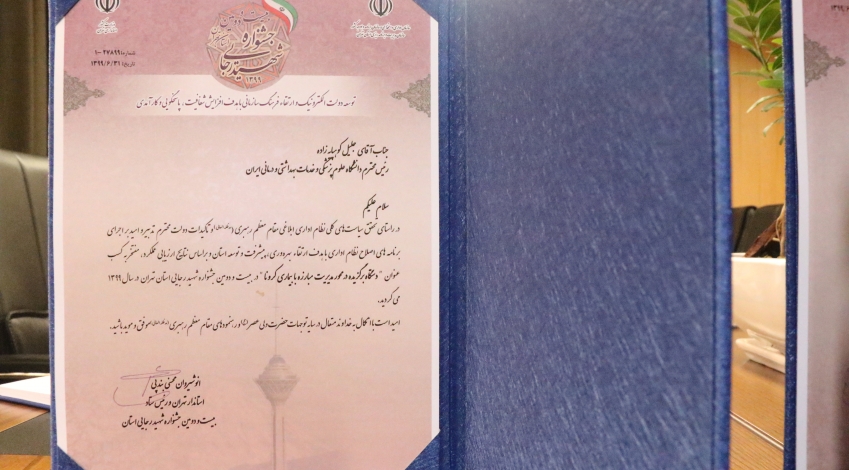 بیست و دومین
جشنواره
شهید رجایی
۱۳۹۹
شماره: ۲۷۸۹۹-۱۰
تاریخ: ۱۳۹۹/۶/۳۱
توسعه دولت الکترونیک و ارتقاء فرهنگ سازمانی با هدف افزایش شفافیت، پاسخگویی و کارآمدی
جناب آقای جلیل کوهپایه زاده
رئیس محترم دانشگاه علوم پزشکی و خدمات بهداشتی و درمانی ایران
سلام علیکم
در راستای تحقق سیاست های کلی نظام اداری ابلاغی مقام معظم رهبری و تاکیدات دولت محترم تدبیر و امید بر اجرای
برنامه های اصلاح نظام اداری با هدف ارتقاء بهره وری، پیشرفت و توسعه استان و بر اساس نتایج ارزیابی عملکرد، مفتخر به کسب
عنوان " دستگاه برگزیده در محور مدیریت مبارزه با بیماری کرونا " در بیست و دومین جشنواره شهید رجایی استان تهران در سال ۱۳۹۹
می گردید.
امید است با اتکال به خداوند متعال در سایه توجهات حضرت ولی عصر و رهنمودهای مقام معظم رهبری موفق و موید باشید.
انوشیروان محسنی بندپی
استاندار تهران و رئیس ستاد
بیست و دومین جشنواره شهید رجایی استان